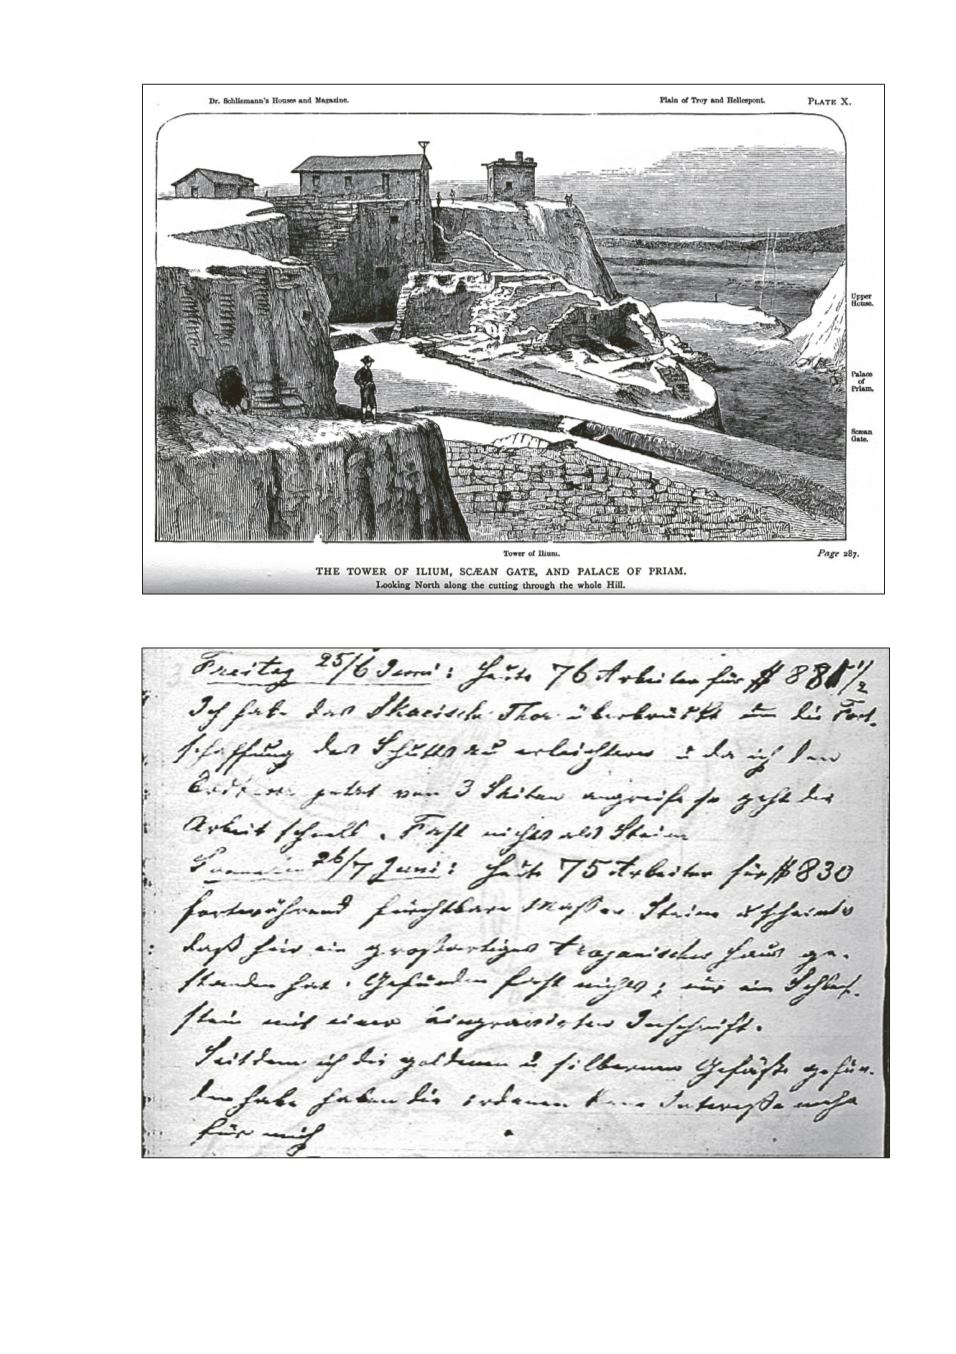 Dr. Schliemann's Houses and Magazine.
Plain of Troy and Hellespont.
PLATE X.
Upper
House.
Palace
of
Priam.
Scæan
Gate.
Tower of Ilium.
Page 287.
THE TOWER OF ILIUM, SCÆAN GATE, AND PALACE OF PRIAM.
Looking North along the cutting through the whole Hill.
Freitag 25/6 Juni: Heute 76 Arbeiter für
Ich habe das Skaeische Thor überbrückt um die Fort-
schaffung des Schuttes zu erleichtern u da ich den
jetzt von 3 Seiten angreife so geht die
Arbeit schnell. Fast nichts als Steine
26/7 Juni: Heute 75 Arbeiter für $ 830
fortwährend furchtbare Massen Steine u scheint
daß hier ein großartiges trojanisches Haus ge-
standen hat. Gefunden fast nichts; nur ein Schleif-
stein mit einer eingravirten Inschrift.
Seitdem ich die goldenen u silbernen Gefäße gefun-
den habe haben die irdenen kein Interesse mehr
für mich